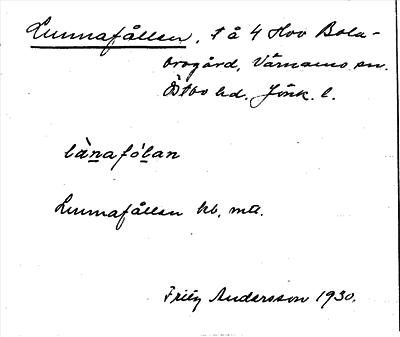 Linnafållan, t å 4 Hov Bola-
drogård, Värnamo sn.
Östbo hd. Jönk. l.
lànafólan
Linnafållan hb, mä.
Fritz Andersson 1930.